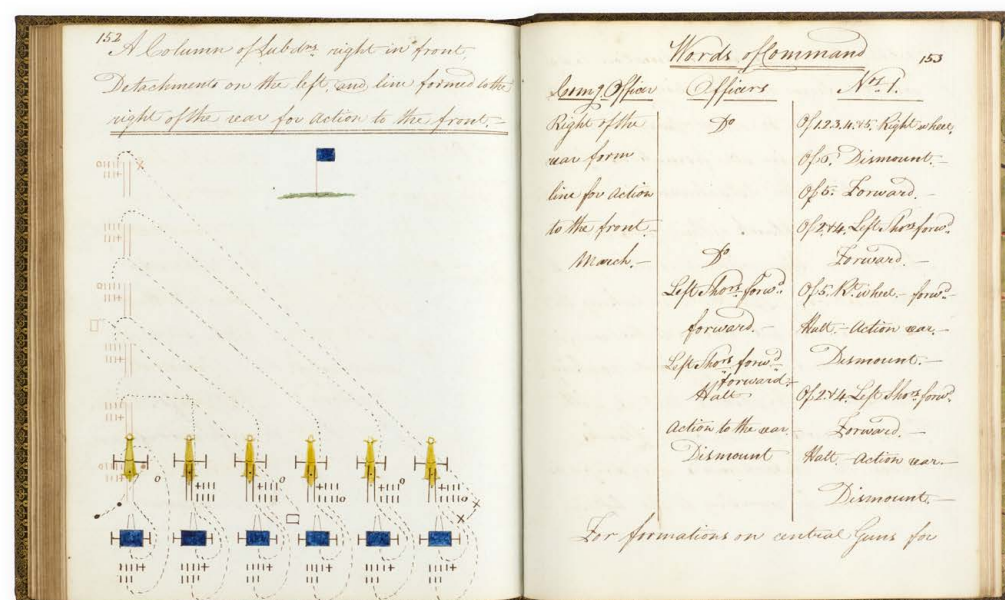 152
A Column of Subdns. right in front,
Detachments on the left, and line formed to the
right of the rear for action to the front.-
Words of Command
153
Comg Officer Officers Nos. 1.
Right of the Do Of 1.2.3.4.&5. Right wheel,
rear form Of 6. Dismount.-
line for action Of 5. Forward.-
to the front.- Of 2.&4. Left Shors. forwd.
March.- Do Forward.-
Left Shors. forwd. Of 5. Rt. wheel.- forwd.-
forward.- Halt.- Action rear.-
Left Shors. forwd.- Dismount.-
forward.-
Halt Of 2.&4. Left Shors. forwd.
Action to the rear Forward.-
Dismount Halt- Action rear.-
Dismount.-
For formations on central Guns for